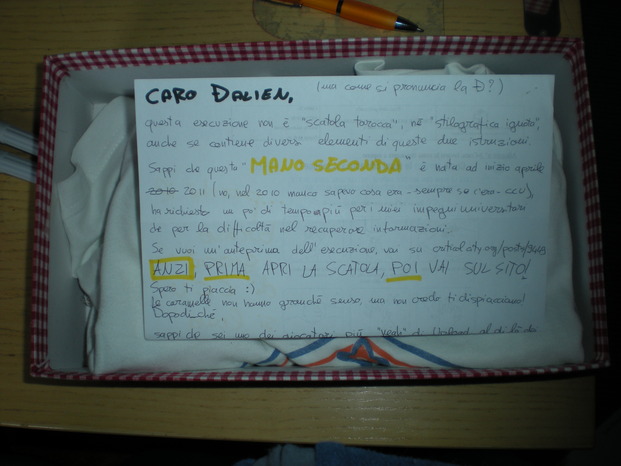 CARO ĐALIEN, (ma come si pronuncia la Đ?)
questa esecuzione non è "scatola tarocca", nè "stilografica ignota",
anche se contiene diversi elementi di queste due istruzioni.
Sappi che questa "MANO SECONDA" è nata ad inizio aprile
2010 2011 (no, nel 2010 manco sapevo cosa era - sempre se c'era - ccu),
ha richiesto un po' di tempo più per i miei impegni universitari
che per la difficoltà nel recuperare informazioni.
Se vuoi un'anteprima dell'esecuzione, vai su
ANZI, PRIMA APRI LA SCATOLA, POI VAI SUL SITO!
Spero ti piaccia :)
Le caramelle non hanno granché senso, ma non credo ti dispiacciano!
Dopodiché,
sappi che sei uno dei giocatori più "reali" di